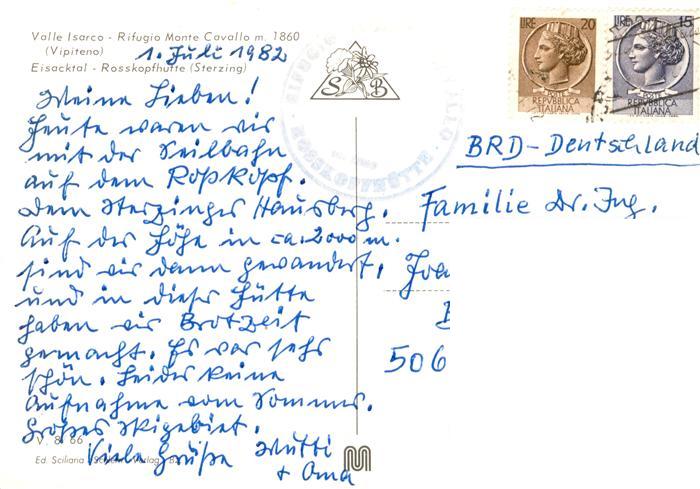 Valle Isarco - Rifugio Monte Cavallo m. 1860
(Vipiteno)
1. Juli 1982
Eisacktal - Rosskopfhütte (Sterzing)
Meine Lieben!
Heute waren wir
mit der Seilbahn
auf dem Roßkopf.
Dem Sterzinger Hausberg.
Auf der Höhe in ca. 2000 m.
sind wir dann gewandert,
und in dieser Hütte
haben wir Brotzeit
gemacht. Es war sehr
schön. Leider keine
Aufnahme vom Sommer.
Großes Skigebiet.
Viele Grüße Mutti
+ Oma
V. 8/66
Ed. Sciliana
S B
ROSSKOPFHÜTTE
LIRE 20
POSTE
REPVBBLICA
ITALIANA
LIRE 15
POSTE
REPVBBLICA
ITALIANA
BRD - Deutschland
Familie Dr. Ing.
Joa
506
M